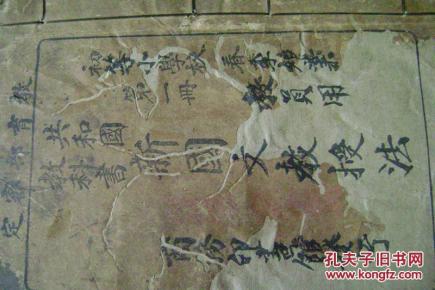 教育部審定
初等小學校 春季始業
第一冊 教員用
共和國
教科書
新國文教授法
商務印書館發行
孔夫子旧书网
www.kongfz.com